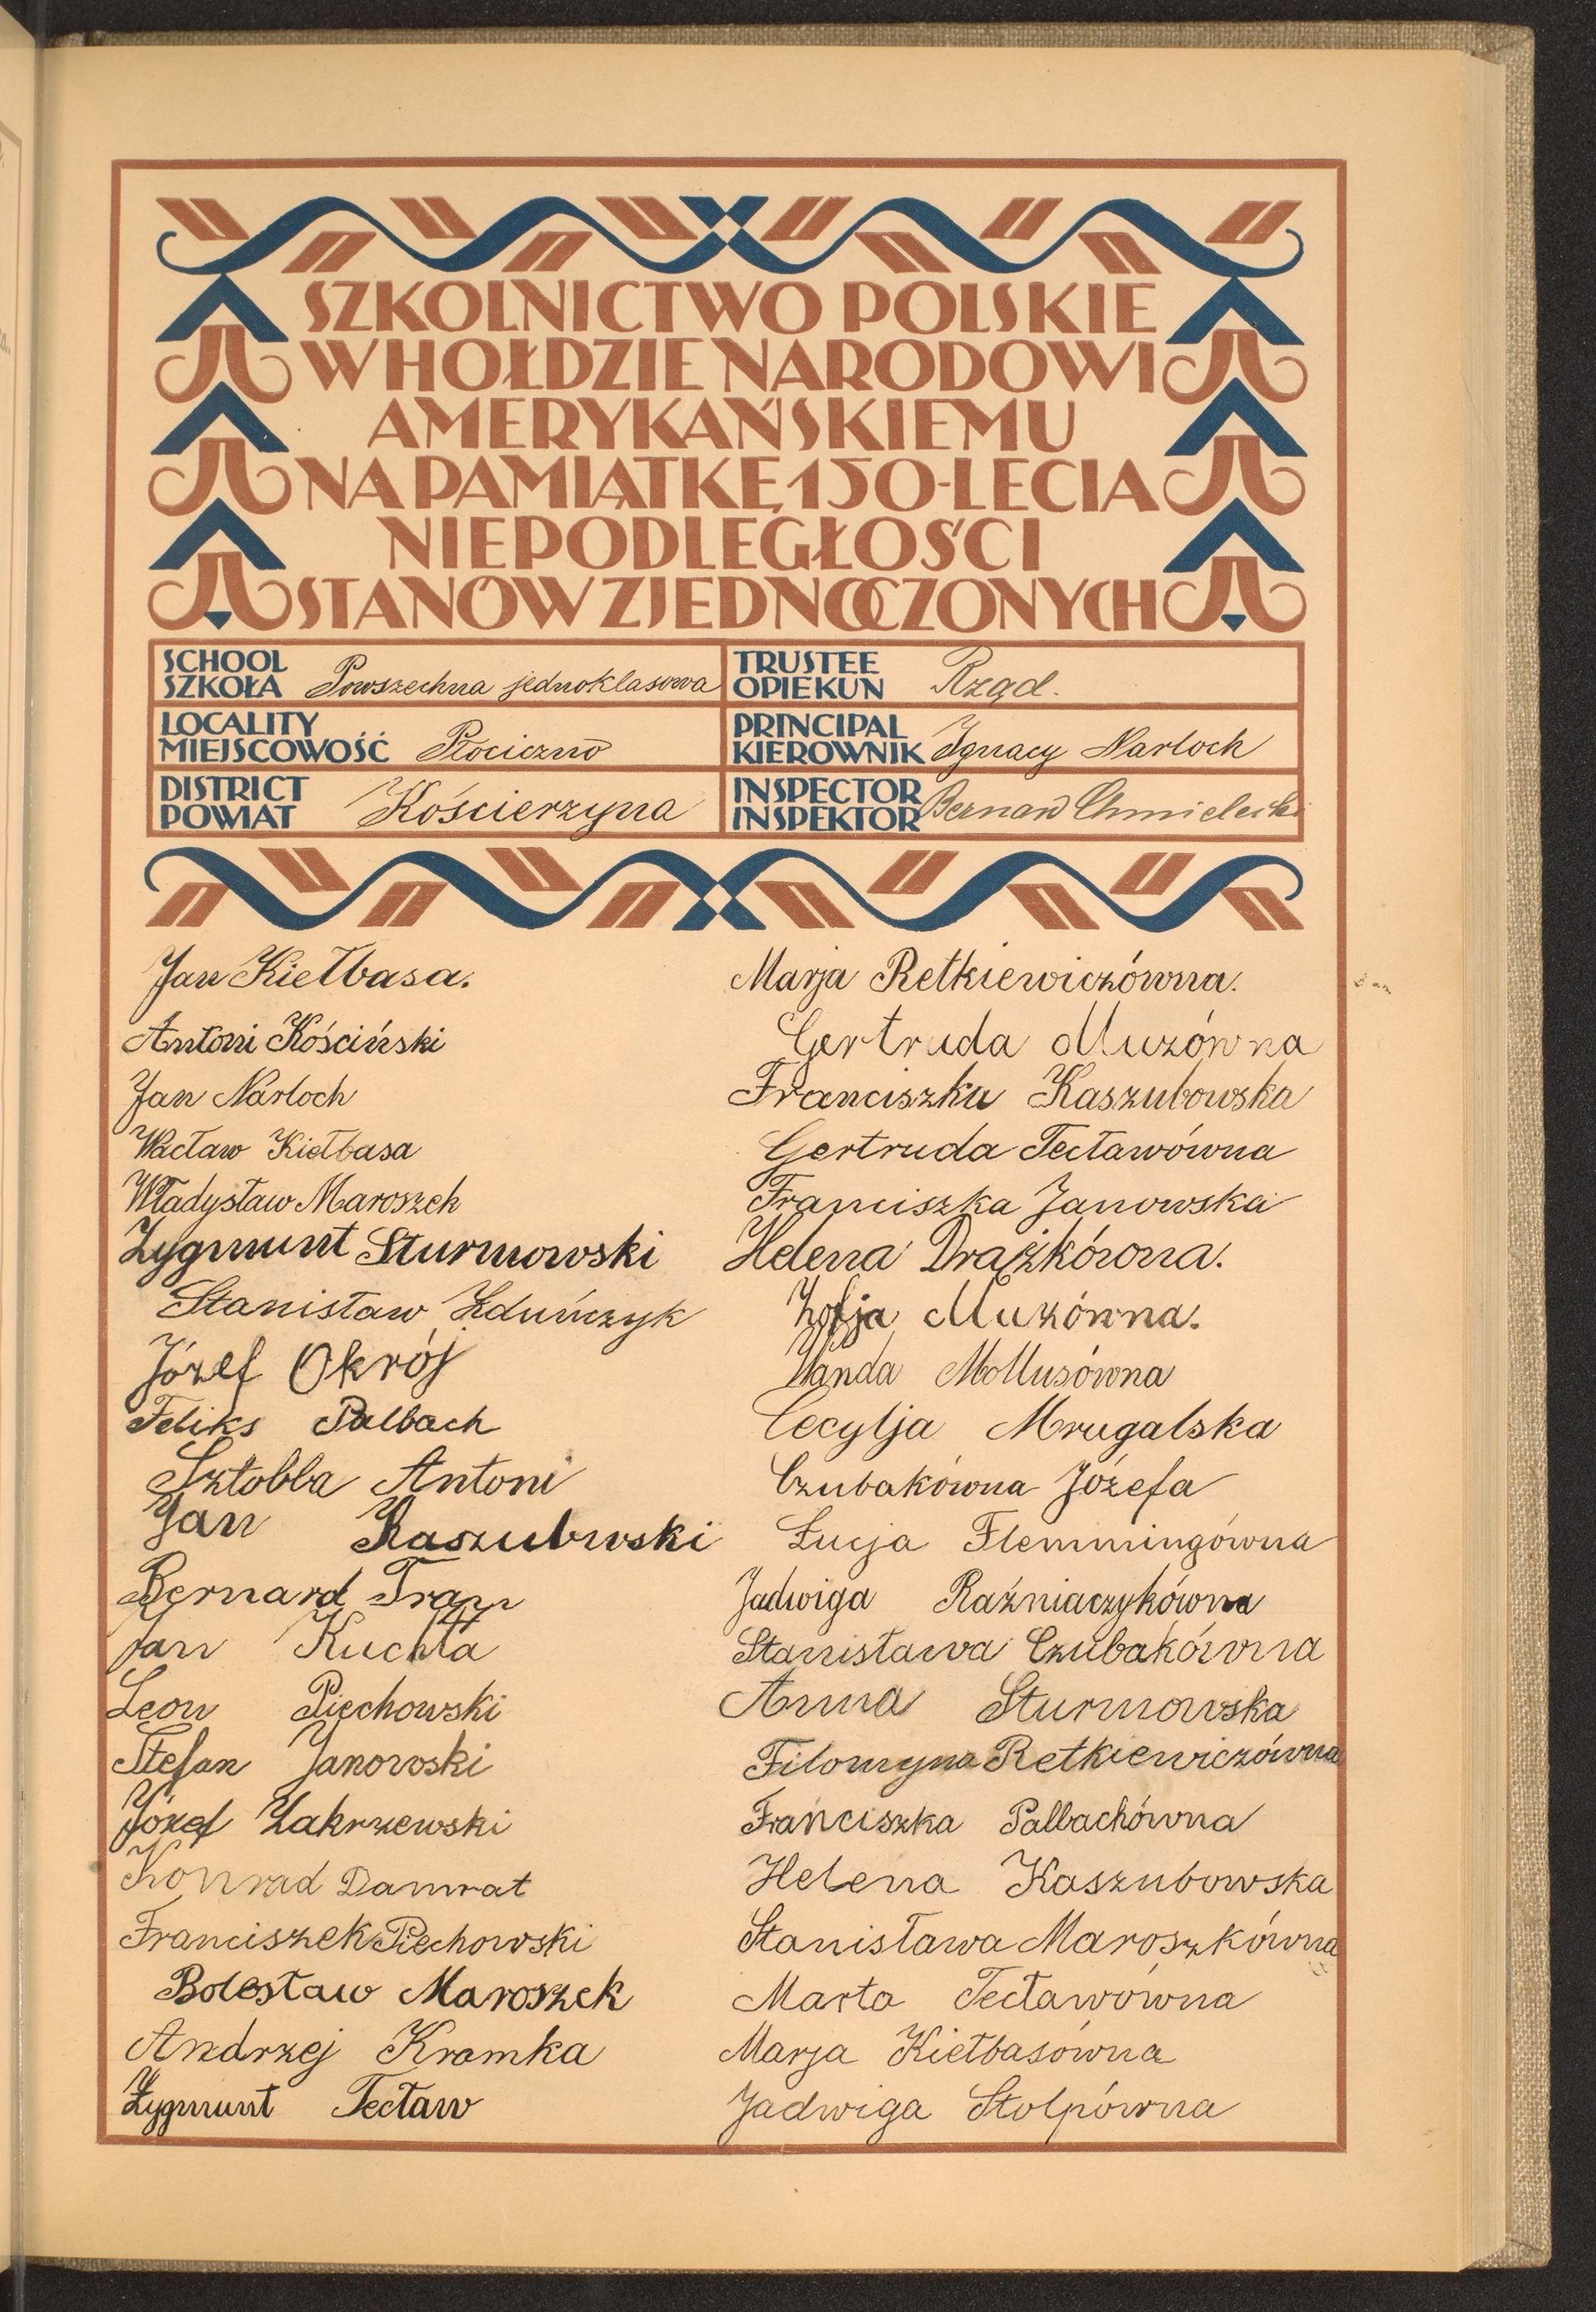 SZKOLNICTWO POLSKIE
W HOŁDZIE NARODOWI
AMERYKAŃSKIEMU
NA PAMIĄTKĘ 150-LECIA
NIEPODLEGŁOŚCI
STANÓW ZJEDNOCZONYCH
SCHOOL
SZKOŁA Powszechna jednoklasowa
TRUSTEE
OPIEKUN Rząd.
LOCALITY
MIEJSCOWOŚĆ Płociczno
PRINCIPAL
KIEROWNIK Ignacy Narloch
DISTRICT
POWIAT Kościerzyna
INSPECTOR
INSPEKTOR Bernard Chmielecki
Jan Kiełbasa.
Antoni Kościński
Jan Narloch
Wacław Kiełbasa
Władysław Maroszek
Zygmunt Sturmowski
Stanisław Zduńczyk
Józef Okrój
Feliks Palbach
Sztobba Antoni
Jan Kaszubwski
Bernard Trapp
Jan Kuchta
Leon Piechowski
Stefan Janowski
Józef Zakrzewski
Konrad Damrat
Franciszek Piechowski
Bolesław Maroszek
Andrzej Kromka
Zygmunt Tecław
Marja Retkiewiczówna.
Gertruda Muzówna
Franciszka Kaszubowska
Gertruda Tecławówna
Franciszka Janowska
Helena Drążkówna.
Zofja Muzówna.
Wanda Mollusówna
Cecylja Mrugalska
Czubakówna Józefa
Łucja Flemmingówna
Jadwiga Raźniaczykówna
Stanisława Czubakówna
Anna Sturmowska
Filomyna Retkiewiczówna
Franciszka Palbachówna
Helena Kaszubowska
Stanisława Maroszkówna
Marta Tecławówna
Marja Kiełbasówna
Jadwiga Stolpówna